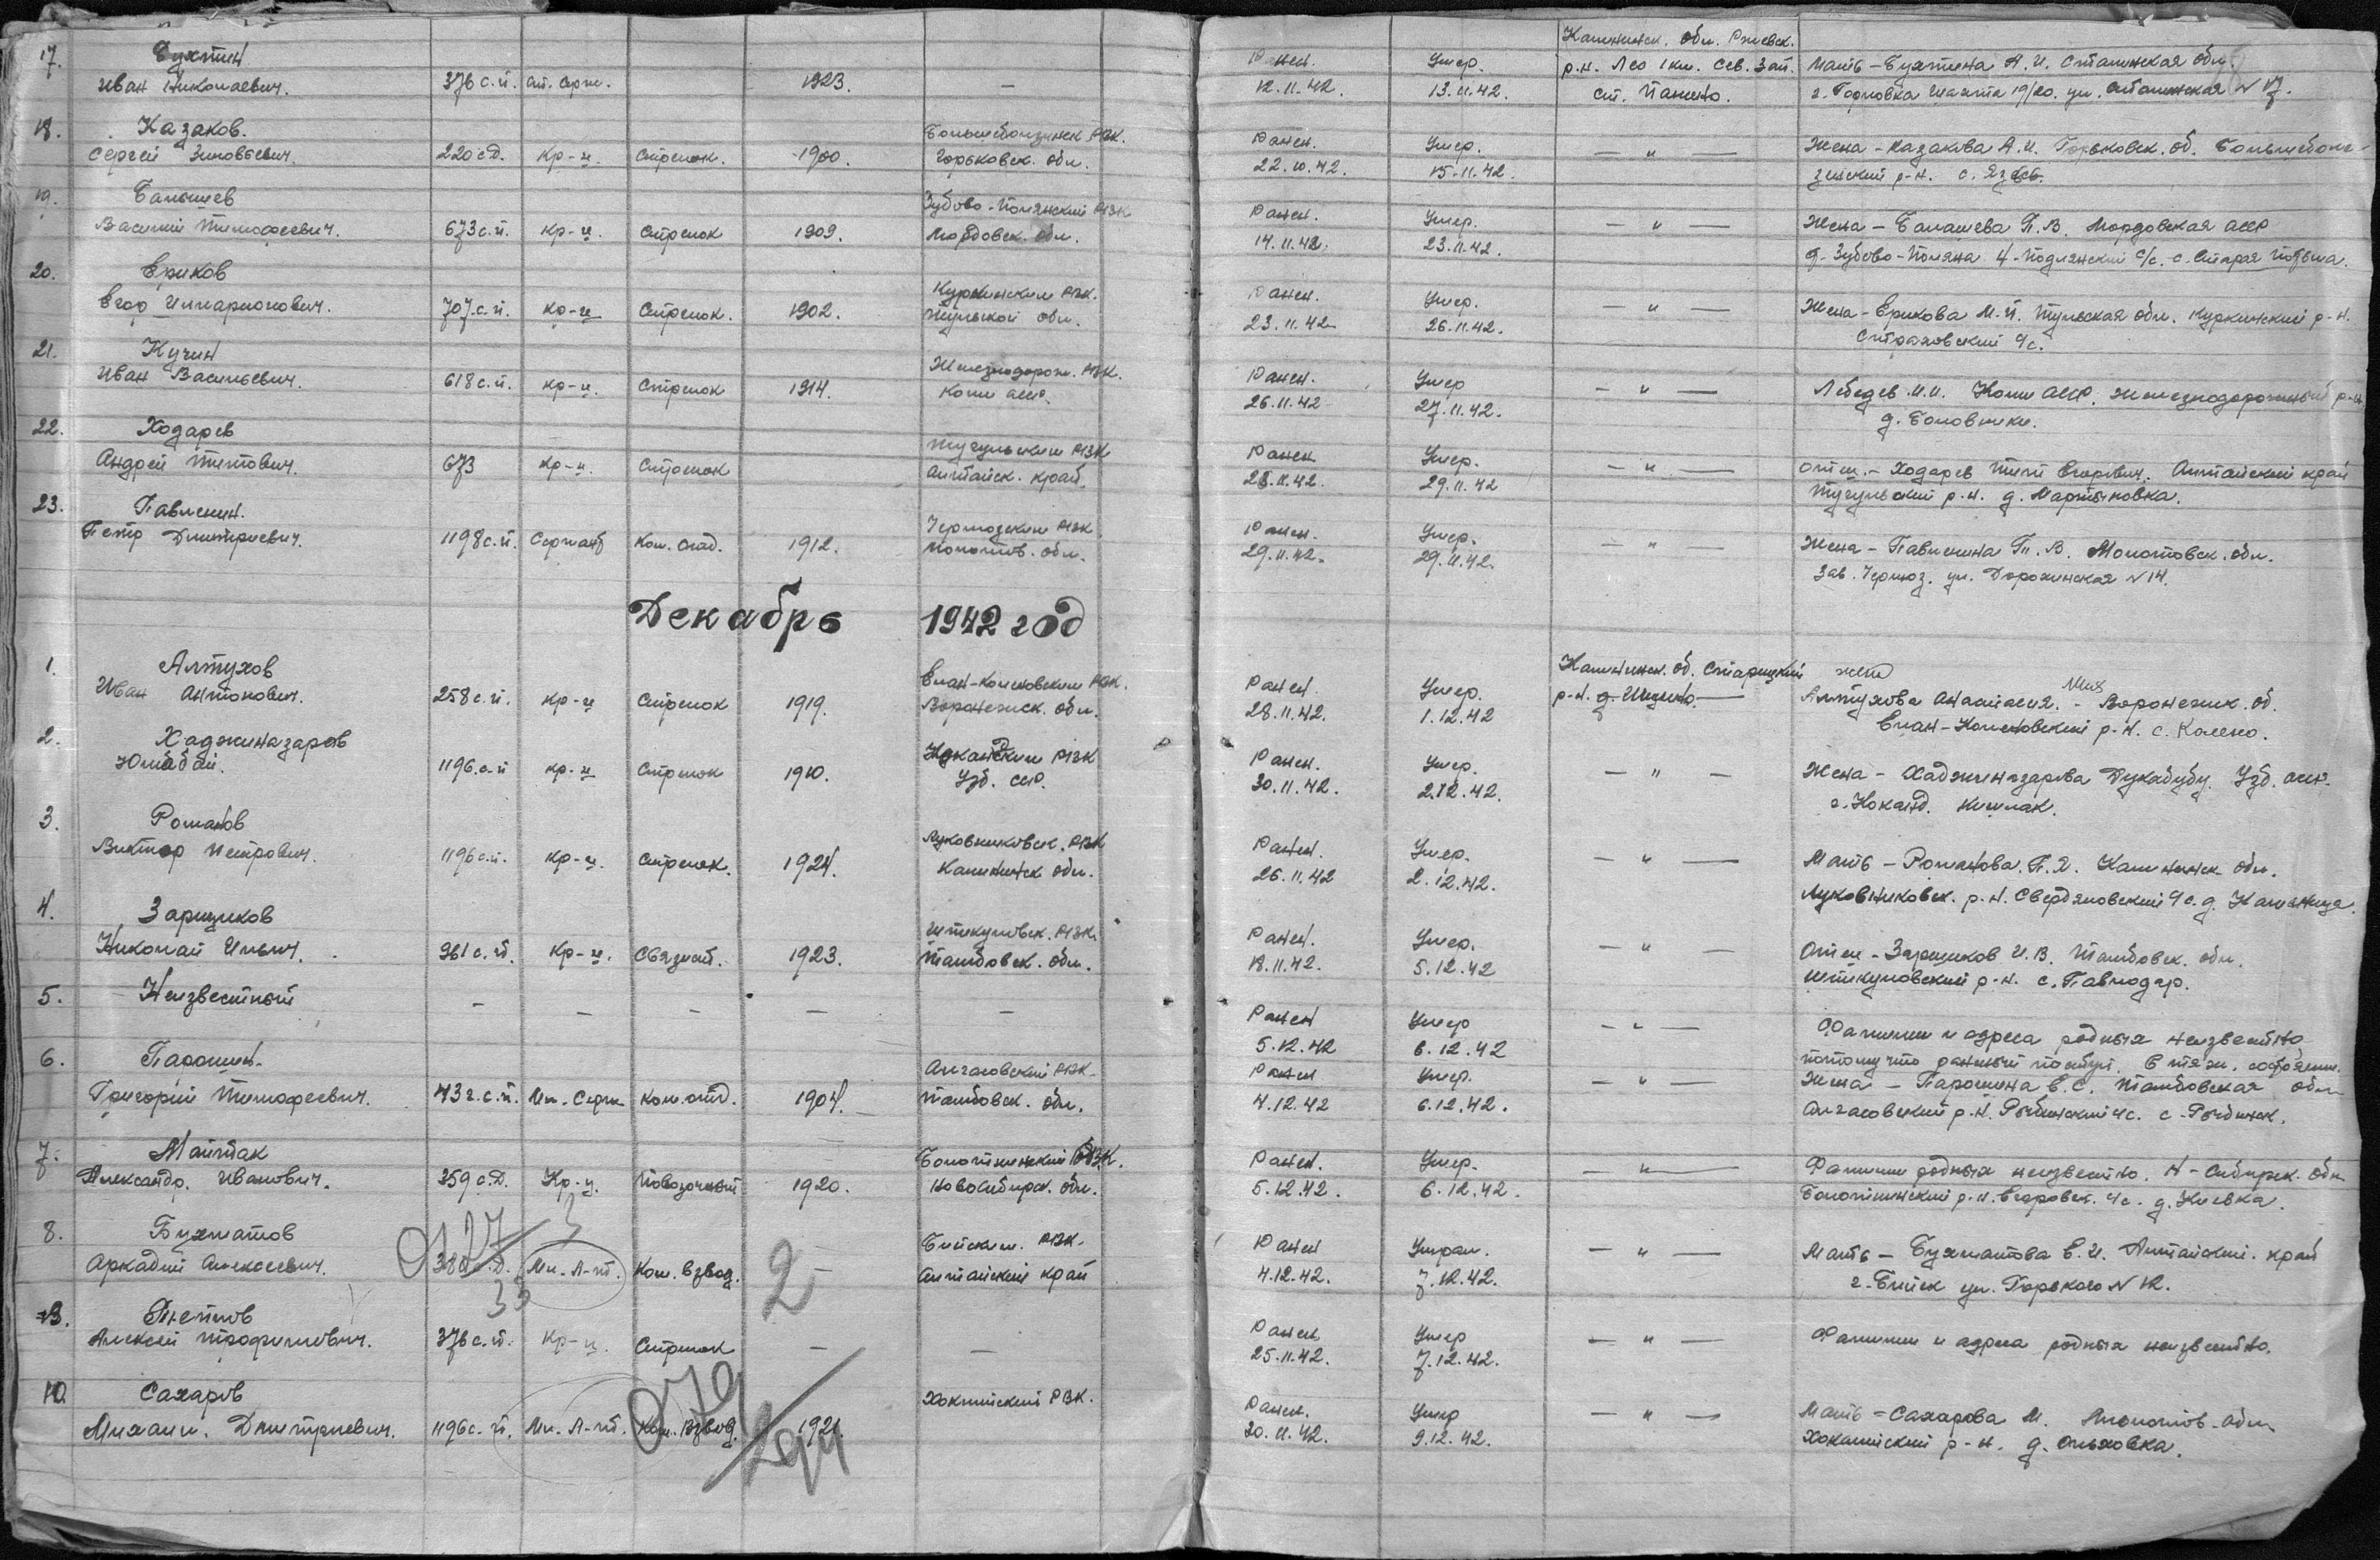 17. Бухтин
Иван Николаевич. 376 с.п. ст. серж. 1923. —
Калининск. обл. Ржевск.
Ранен. Умер. р-н. Лес 1 км. Сев. Зап. Мать – Бухтина А. И. Сталинская обл.
12.11.42. 13.11.42. ст. Панино. г. Горловка Шахта 19/20. ул. Сталинская № 17.
18. Казаков.
Сергей Зиновьевич. 220 с.д. кр-ц. Стрелок. 1900. Горьковск. обл.
Ранен. Умер. — " — Жена – Казакова А. И. Горьковск. об.
22.10.42. 15.11.42. р-н. с.
19. Балышев
Зубово-Полянский РВК
Василий Тимофеевич. 673 с.п. кр-ц. Стрелок 1909. Мордовск. обл.
Ранен. Умер. — " — Жена – Балашева П. В. Мордовская АССР
14.11.42. 23.11.42. Зубово-Поляна с/с. с.
20. Ериков
Куркинским РВК.
Егор Илларионович. 707. с.п. кр-ц Стрелок. 1902. Тульской обл.
Ранен. Умер. — " — Жена – Ерикова М. П. Тульская обл. Куркинский р-н.
23.11.42 26.11.42. Страховский с/с.
21. Кучин
Железнодорож. РВК.
Иван Васильевич. 618 с.п. кр-ц. Стрелок 1914. Коми АССР.
Ранен. Умер — " — Лебедев И. И. Коми АССР. Железнодорожный р-н
26.11.42 27.11.42. д. Боловники.
22. Ходарев
РВК
Андрей Титович. 673 кр-ц. Стрелок Алтайск. край.
Ранен Умер. — " — Отец. – Ходарев Тит Егорович. Алтайский край
28.11.42. 29.11.42 р-н. д. Мартыновка.
23. Павленин.
Чермозским РВК.
Петр Дмитриевич. 1198 с.п. Сержант Ком. отд. 1912. Молотов. обл.
Ранен. Умер. — " — Жена – Павленина П. В. Молотовск. обл.
29.11.42. 29.11.42. Зав. Чермоз. ул. Дорохинская № 14.
Декабрь 1942 год
1. Алтухов
Елан-Коленовским РВК.
Иван Антонович. 258 с.п. кр-ц Стрелок 1919. Воронежск. обл.
Калининск. об. Старицкий жена
Ранен. Умер. р-н. д. Алтухова Анастасия. – Воронежск. об.
28.11.42. 1.12.42 Елан-Коленовский р-н. с. Колено.
2. Хаджиназаров
РВК
Юлдабай. 1196. с.п кр-ц Стрелок 1910. Узб. ССР.
Ранен. Умер. — " — Жена – Хаджиназарова Узб. ССР.
30.11.42. 2.12.42. г. Коканд. кишлак.
3. Романов
Луковниковск. РВК
Виктор Петрович. 1196 с.п. кр-ц. стрелок. 1924. Калининск обл.
Ранен. Умер. — " — Мать – Романова. П. Я. Калининск. обл.
26.11.42 2.12.42. Луковниковск. р-н. Свердловский с/с. д.
4. Зарщиков
РВК.
Николай Ильич. 961 с.п. Кр-ц. Связист. 1923. Тамбовск. обл.
Ранен. Умер. — " — Отец – Зарщиков И. В. Тамбовск. обл.
18.11.42. 5.12.42 р-н. с. Павлодар.
5. Неизвестный — — — — —
Ранен Умер — " — Фамилии и адреса родных неизвестно
5.12.42 6.12.42 потому что раненый поступ. в тяж. состоянии.
6. Парошин.
Алгасовский РВК.
Григорий Тимофеевич. 43 г.с.п. Мл. Серж Ком. отд. 1904. Тамбовск. обл.
Ранен Умер. — " — Жена – Парошина Е. С. Тамбовская обл
4.12.42 6.12.42. Алгасовский р-н. с/с. с.
7. Майтак
Болотнинский РВК.
Александр. Иванович. 359 с.д. Кр-ц. Повозочный 1920. Новосибирск. обл.
Ранен. Умер. — " — Фамилии родных неизвестно. Н-Сибирск. обл
5.12.42. 6.12.42. Болотнинский р-н. Егоровск. с/с. д. Киевка.
8. Бухматов
Бийским. РВК.
Аркадий Алексеевич. Мл. Л-нт. Ком. взвод. — Алтайский край
Ранен Умер. — " — Мать – Бухматова Е. И. Алтайский. край
4.12.42. 7.12.42. г. Бийск ул. Горького № 12.
Алексей Трофимович. 376 с.п. Кр-ц. Стрелок — —
Ранен Умер — " — Фамилии и адреса родных неизвестно.
25.11.42. 7.12.42.
10. Сахаров
РВК.
Михаил. Дмитриевич. 1196 с.п. Мл. Л-нт. Ком. Взвод. 1921.
Ранен. Умер — " — Мать – Сахарова М. Молотов. обл
30.11.42. 9.12.42. р-н. д. Ольховка.
2
079